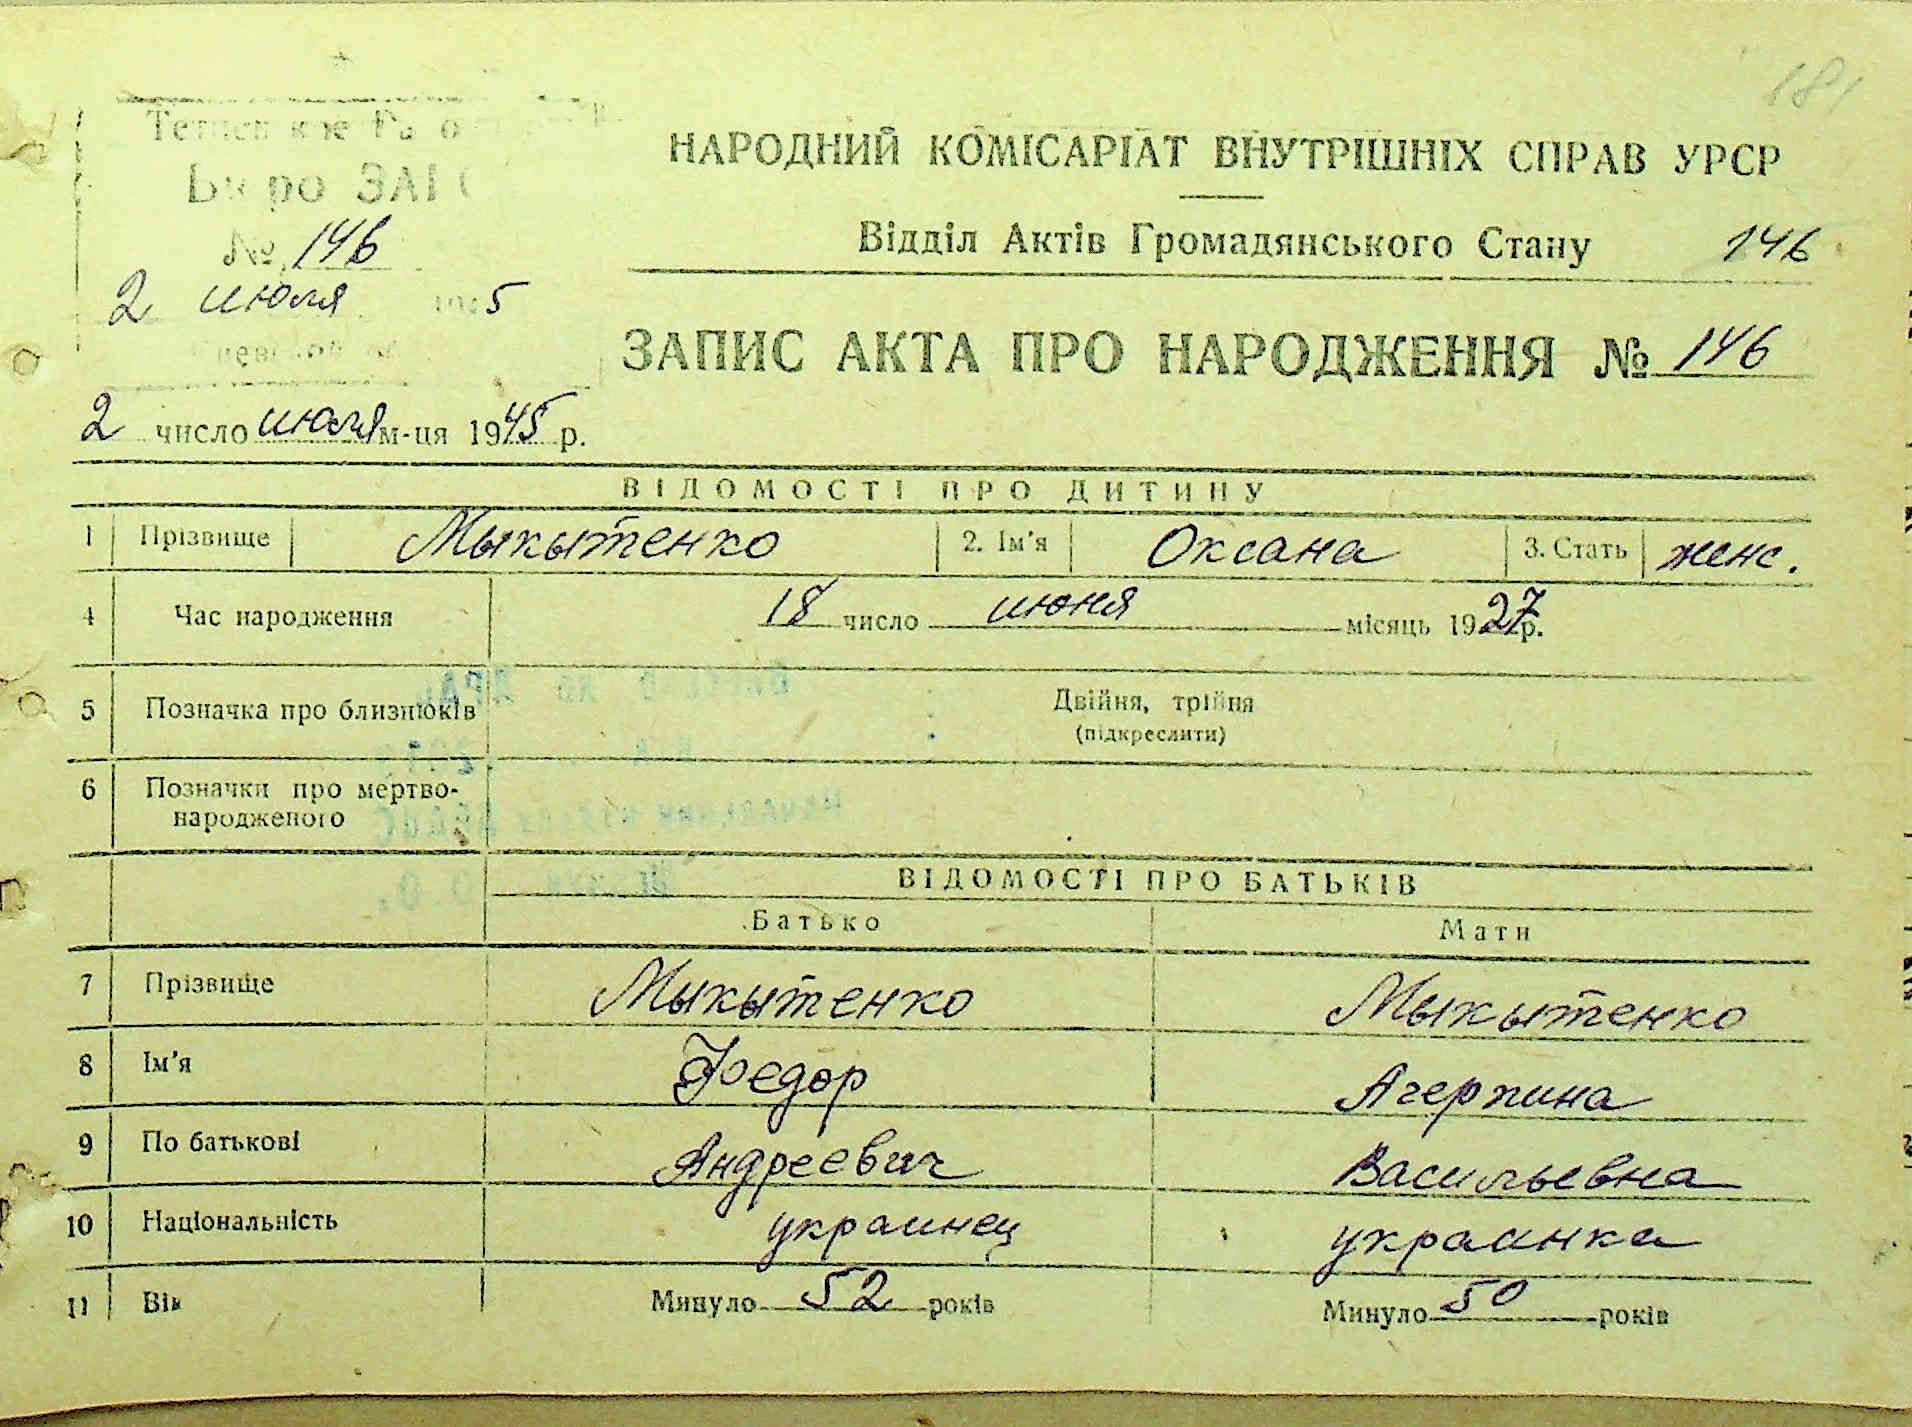 181
Бюро ЗАГС
№ 146
2 июля 1945
НАРОДНИЙ КОМІСАРІАТ ВНУТРІШНІХ СПРАВ УРСР
Відділ Актів Громадянського Стану 146
ЗАПИС АКТА ПРО НАРОДЖЕННЯ № 146
2 число июля м-ця 1945 р.
ВІДОМОСТІ ПРО ДИТИНУ
1 Прізвище Мыкытенко 2. Ім'я Оксана 3. Стать женс.
4 Час народження 18 число июня місяць 1927 р.
5 Позначка про близнюків Двійня, трійня
(підкреслити)
6 Позначки про мертво-
народженого
ВІДОМОСТІ ПРО БАТЬКІВ
Батько Мати
7 Прізвище Мыкытенко Мыкытенко
8 Ім'я Федор
9 По батькові Андреевич Васильевна
10 Національність украинец украинка
11 Вік Минуло 52 років Минуло 50 років